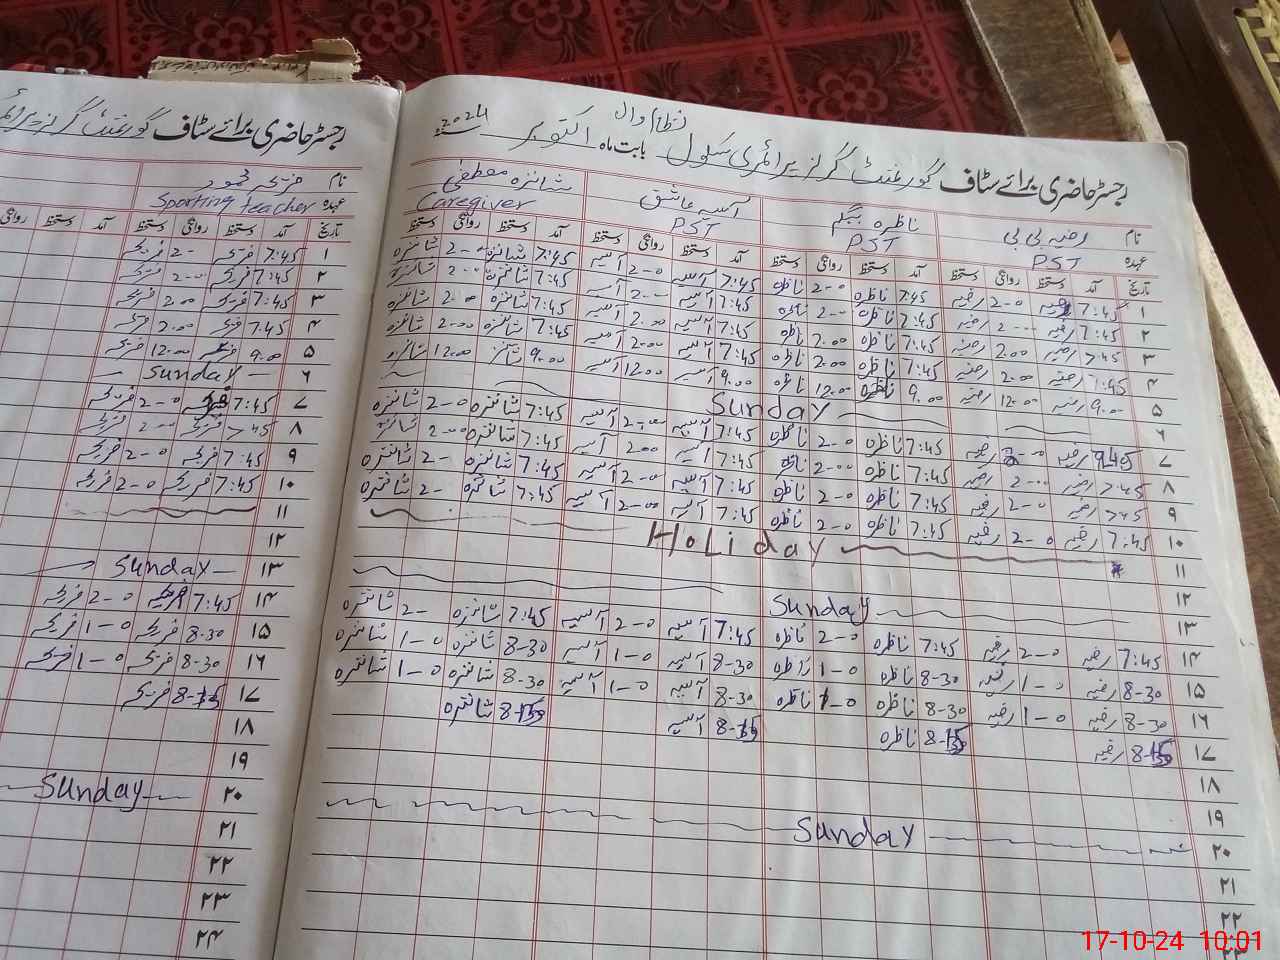 رجسٹر حاضری برائے سٹاف گورنمنٹ گرلز پرائمری سکول نظام وال بابت ماہ اکتوبر 2024
نام رضیہ بی بی ناظرہ بیگم آسیہ عاشق شانزہ مصطفی
عہدہ PST PST PST Caregiver
تاریخ آمد دستخط روانگی دستخط آمد دستخط روانگی دستخط آمد دستخط روانگی دستخط آمد دستخط روانگی دستخط
۱ 7:45 رضیہ 2-0 رضیہ 7:45 ناظرہ 2-0 ناظرہ 7:45 آسیہ 2-0 آسیہ 7:45 شانزہ 2-0 شانزہ
۲ 7:45 رضیہ 2-00 رضیہ 7:45 ناظرہ 2-00 ناظرہ 7:45 آسیہ 2-00 آسیہ 7:45 شانزہ 2-00 شانزہ
۳ 7:45 رضیہ 2.00 رضیہ 7:45 ناظرہ 2.00 ناظرہ 7:45 آسیہ 2.00 آسیہ 7:45 شانزہ 2.00 شانزہ
۴ 7:45 رضیہ 2.00 رضیہ 7:45 ناظرہ 2.00 ناظرہ 7:45 آسیہ 2.00 آسیہ 7:45 شانزہ 2.00 شانزہ
۵ 9.00 رضیہ 12.00 رضیہ 9.00 ناظرہ 12.00 ناظرہ 9.00 آسیہ 12.00 آسیہ 9.00 شانزہ 12.00 شانزہ
۶ Sunday
۷ رضیہ رضیہ 7:45 ناظرہ 2-0 ناظرہ 7:45 آسیہ 2-00 آسیہ 7:45 شانزہ 2-0 شانزہ
۸ 7:45 رضیہ 2-00 رضیہ 7:45 ناظرہ 2-00 ناظرہ 7:45 آسیہ 2.00 آسیہ 7:45 شانزہ 2-00 شانزہ
۹ 7:45 رضیہ 2-0 رضیہ 7:45 ناظرہ 2-0 ناظرہ 7:45 آسیہ 2-00 آسیہ 7:45 شانزہ 2- شانزہ
۱۰ 7:45 رضیہ 2-0 رضیہ 7:45 ناظرہ 2-0 ناظرہ 7:45 آسیہ 2-00 آسیہ 7:45 شانزہ 2- شانزہ
۱۱ HoLiday
۱۲
۱۳ Sunday
۱۴ 7:45 رضیہ 2-0 رضیہ 7:45 ناظرہ 2-0 ناظرہ 7:45 آسیہ 2-0 آسیہ 7:45 شانزہ 2- شانزہ
۱۵ 8-30 رضیہ 1-0 رضیہ 8-30 ناظرہ 1-0 ناظرہ 8-30 آسیہ 1-0 آسیہ 8-30 شانزہ 1-0 شانزہ
۱۶ 8-30 رضیہ 1-0 رضیہ 8-30 ناظرہ 1-0 ناظرہ 8-30 آسیہ 1-0 آسیہ 8-30 شانزہ 1-0 شانزہ
۱۷ 8-15 رضیہ 8-15 ناظرہ 8-15 آسیہ 8-15 شانزہ
۱۸
۱۹
۲۰ Sunday
۲۱
۲۲
۲۳
رجسٹر حاضری برائے سٹاف گورنمنٹ گرلز
نام
عہدہ Sporting teacher
تاریخ آمد دستخط روانگی دستخط آمد دستخط روانگی
۱ 7:45 2-0
۲ 7:45 2-00
۳ 7:45 2.00
۴ 7:45 2.00
۵ 9.00 12.00
۶ Sunday
۷ 7:45 2-0
۸ 7:45 2-00
۹ 7:45 2-0
۱۰ 7:45 2-0
۱۱
۱۲
۱۳ Sunday
۱۴ 7:45 2-0
۱۵ 8-30 1-0
۱۶ 8-30 1-0
۱۷ 8-15
۱۸
۱۹
۲۰ Sunday
۲۱
۲۲
۲۳
۲۴
17-10-24 10:01